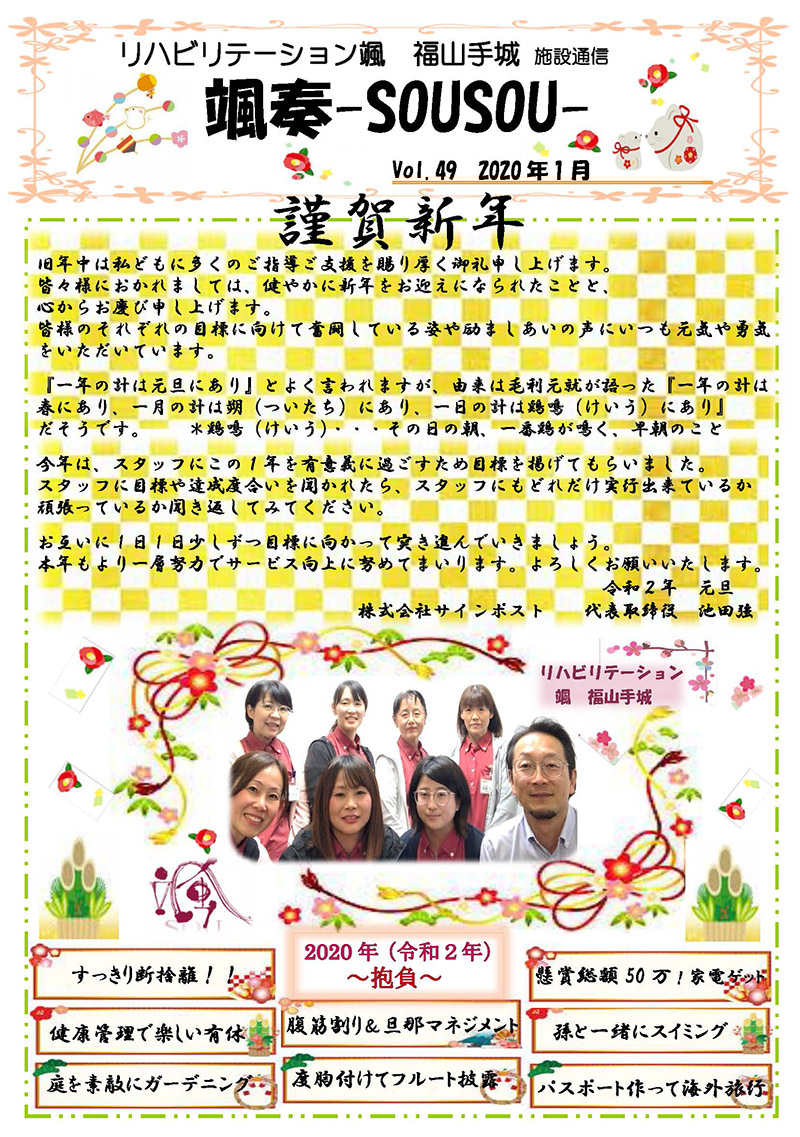 リハビリテーション颯　福山手城 施設通信
颯奏-SOUSOU-
Vol.49　2020年1月
謹賀新年
旧年中は私どもに多くのご指導ご支援を賜り厚く御礼申し上げます。
皆々様におかれましては、健やかに新年をお迎えになられたことと、
心からお慶び申し上げます。
皆様のそれぞれの目標に向けて奮闘している姿や励ましあいの声にいつも元気や勇気
をいただいています。
『一年の計は元旦にあり』とよく言われますが、由来は毛利元就が語った『一年の計は
春にあり、一月の計は朔（ついたち）にあり、一日の計は鶏鳴（けいう）にあり』
だそうです。　＊鶏鳴（けいう）・・・その日の朝、一番鶏が鳴く、早朝のこと
今年は、スタッフにこの１年を有意義に過ごすため目標を掲げてもらいました。
スタッフに目標や達成度合いを聞かれたら、スタッフにもどれだけ実行出来ているか
頑張っているか聞き返してみてください。
お互いに１日１日少しずつ目標に向かって突き進んでいきましょう。
本年もより一層努力でサービス向上に努めてまいります。よろしくお願いいたします。
令和２年　元旦
株式会社サインポスト　代表取締役　池田強
リハビリテーション
颯　福山手城
颯
SOU
2020年（令和２年）
～抱負～
すっきり断捨離！！
懸賞総額50万！家電ゲット
健康管理で楽しい有休
腹筋割り＆旦那マネジメント
孫と一緒にスイミング
庭を素敵にガーデニング
度胸付けてフルート披露
パスポート作って海外旅行